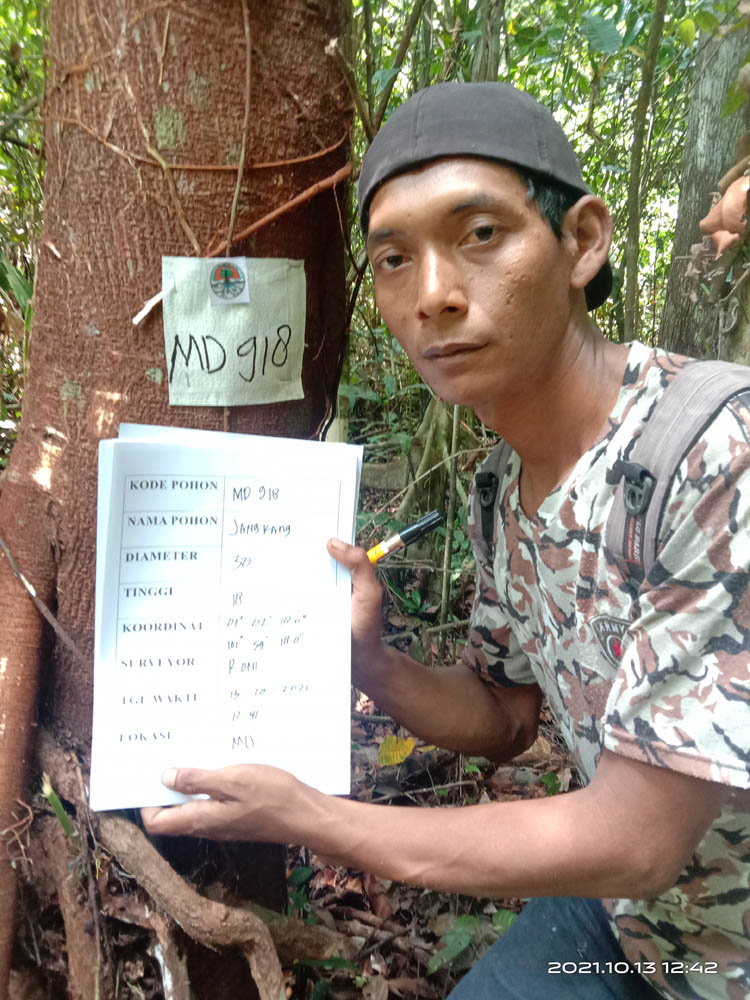 MD 918
KODE POHON MD 918
NAMA POHON JANGKANG
DIAMETER 30
TINGGI 18
KOORDINAT
SURVEYOR RONI
TGL WAKTU 13 10 2021
12 41
LOKASI MD
ARMY
2021.10.13 12:42